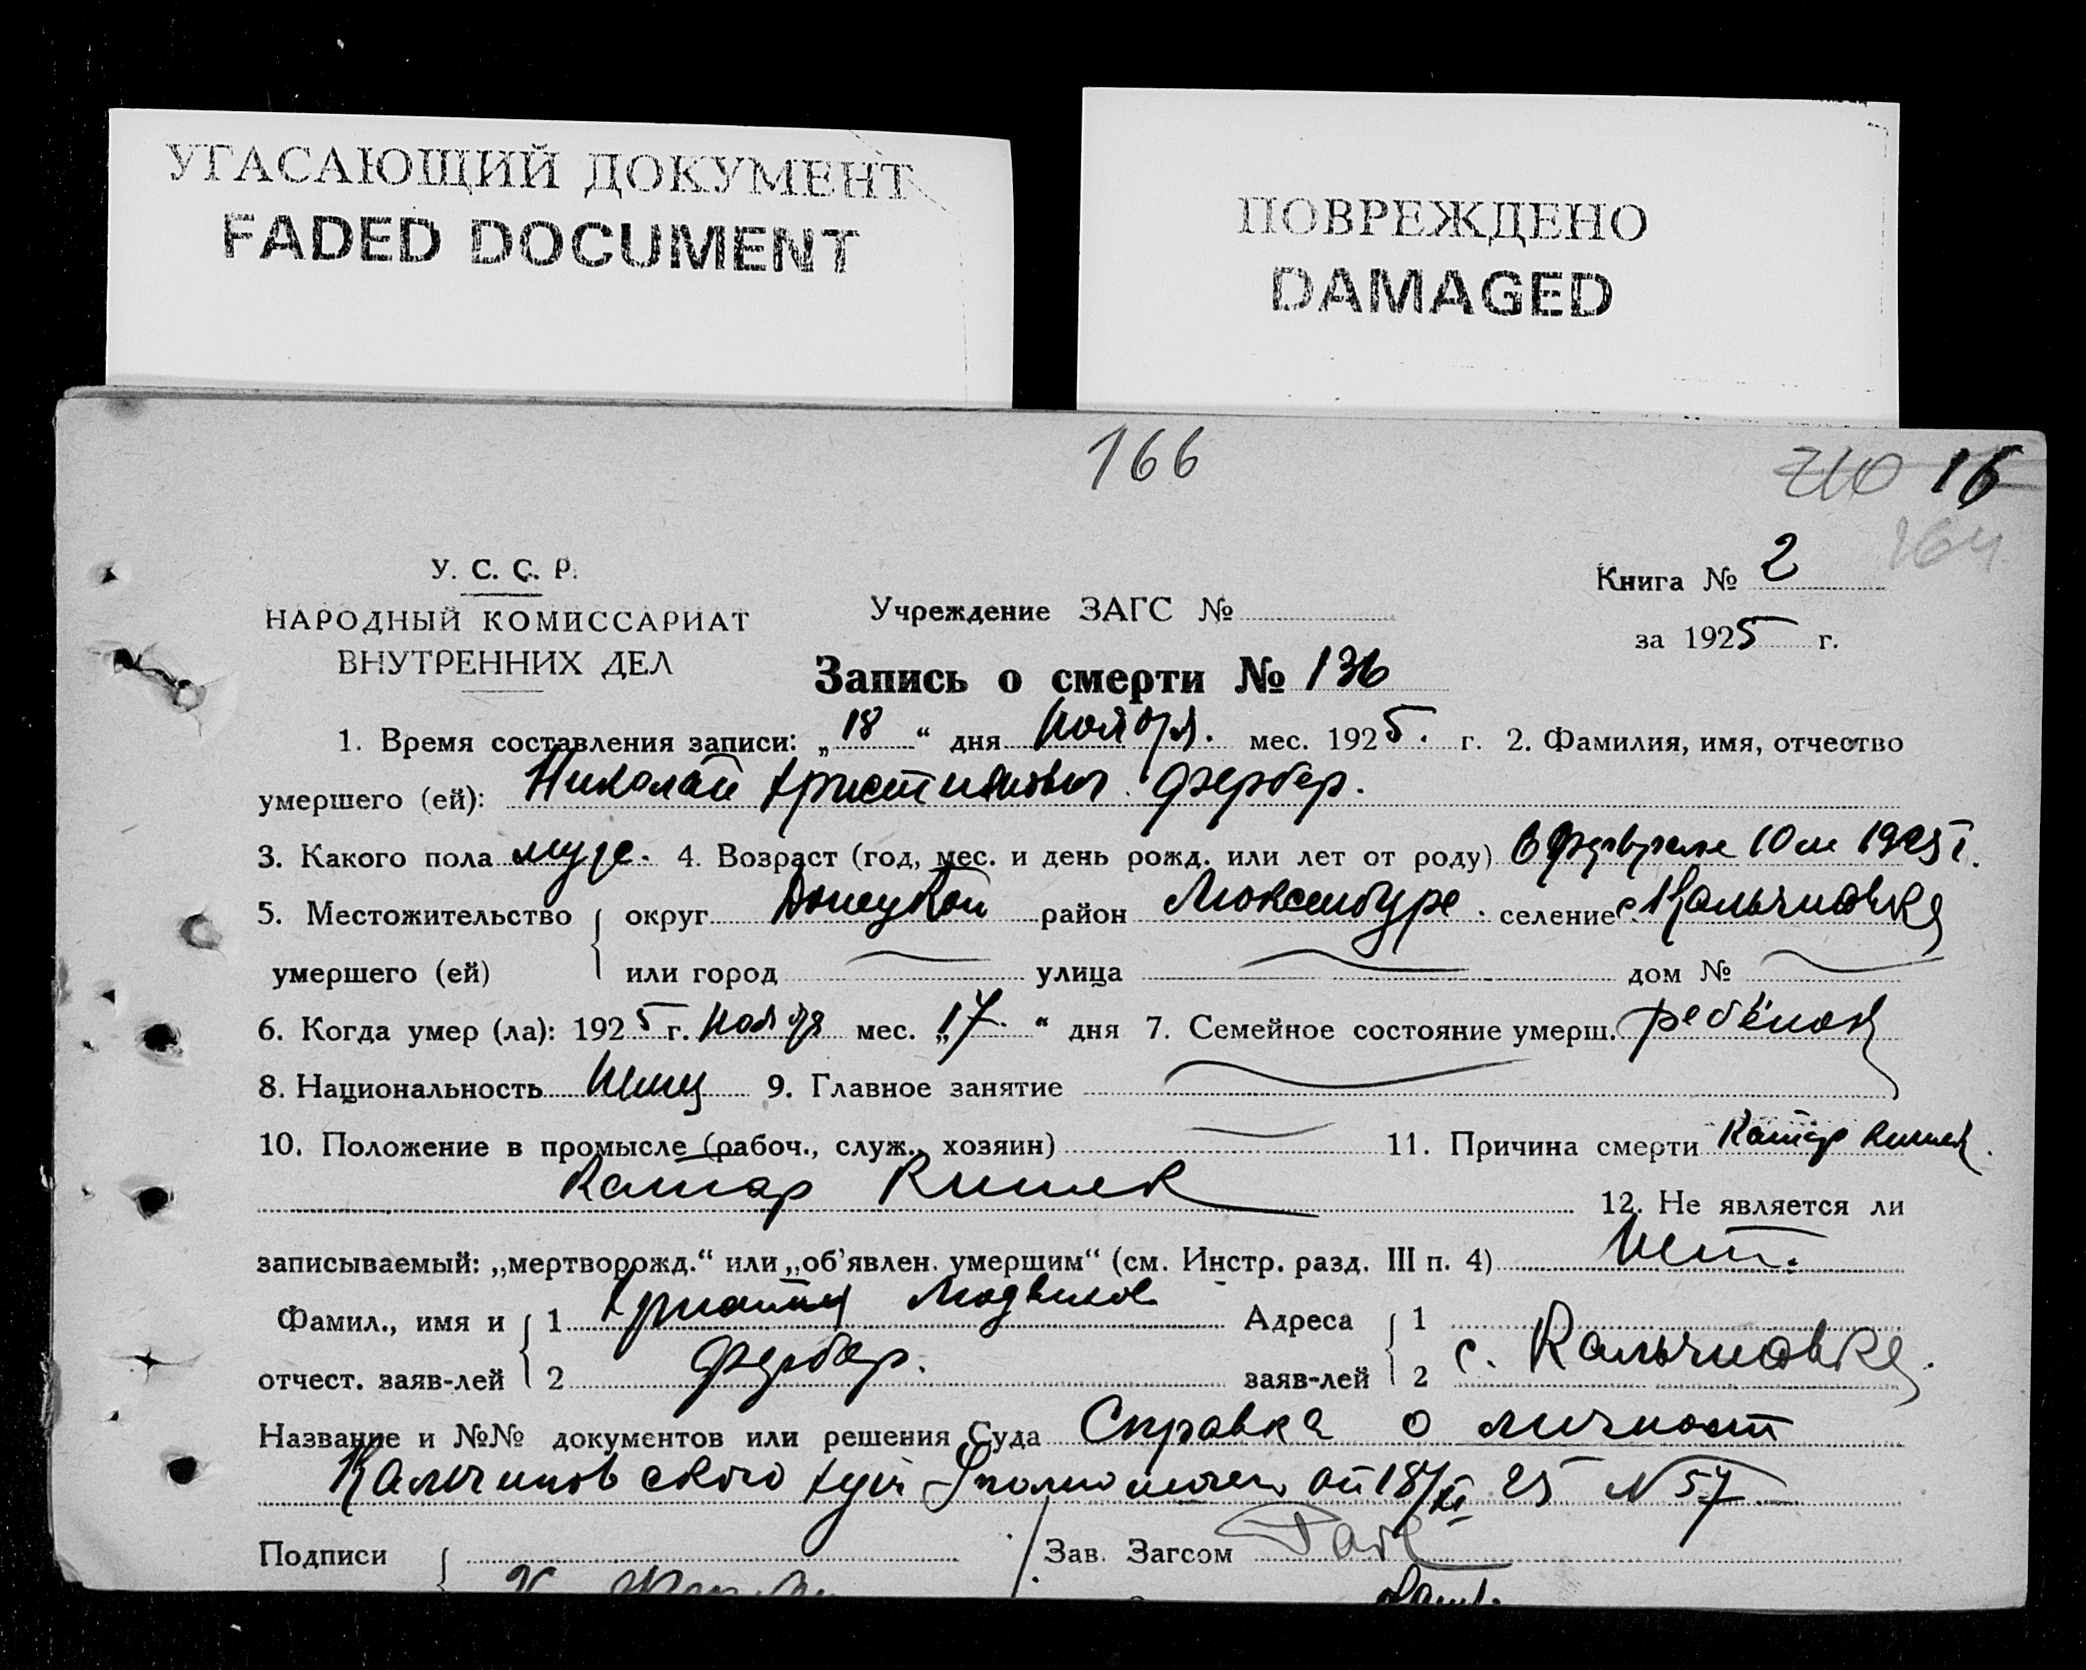 УГАСАЮЩИЙ ДОКУМЕНТ
FADED DOCUMENT
ПОВРЕЖДЕНО
DAMAGED
166
210 16
164
У. С. С. Р.
НАРОДНЫЙ КОМИССАРИАТ
ВНУТРЕННИХ ДЕЛ
Учреждение ЗАГС №
Книга № 2
за 1925 г.
Запись о смерти № 136
1. Время составления записи: „18“ дня Ноября. мес. 1925. г. 2. Фамилия, имя, отчество
умершего (ей): Николай Христианович Фербер.
3. Какого пола муж. 4. Возраст (год, мес. и день рожд. или лет от роду) в феврале 10 м 1925 г.
5. Местожительство округ Донецкой район Люксембург. селение с. Кальчиновка
умершего (ей) или город улица дом №
6. Когда умер (ла): 1925 г. Ноября мес. „17.“ дня 7. Семейное состояние умерш. ребёнок
8. Национальность Немц 9. Главное занятие
10. Положение в промысле (рабоч., служ., хозяин) 11. Причина смерти Катар кишек.
Катар Кишек 12. Не является ли
записываемый: „мертворожд.“ или „об'явлен. умершим“ (см. Инстр. разд. III п. 4) Нет.
Фамил., имя и 1 Христиан Людвигов Адреса 1
отчест. заяв-лей 2 Фербер. заяв-лей 2 с. Кальчиновка.
Название и №№ документов или решения Суда Справка о личност
Кальчиновского от 18/XI 25 N 57
Подписи Зав. Загсом